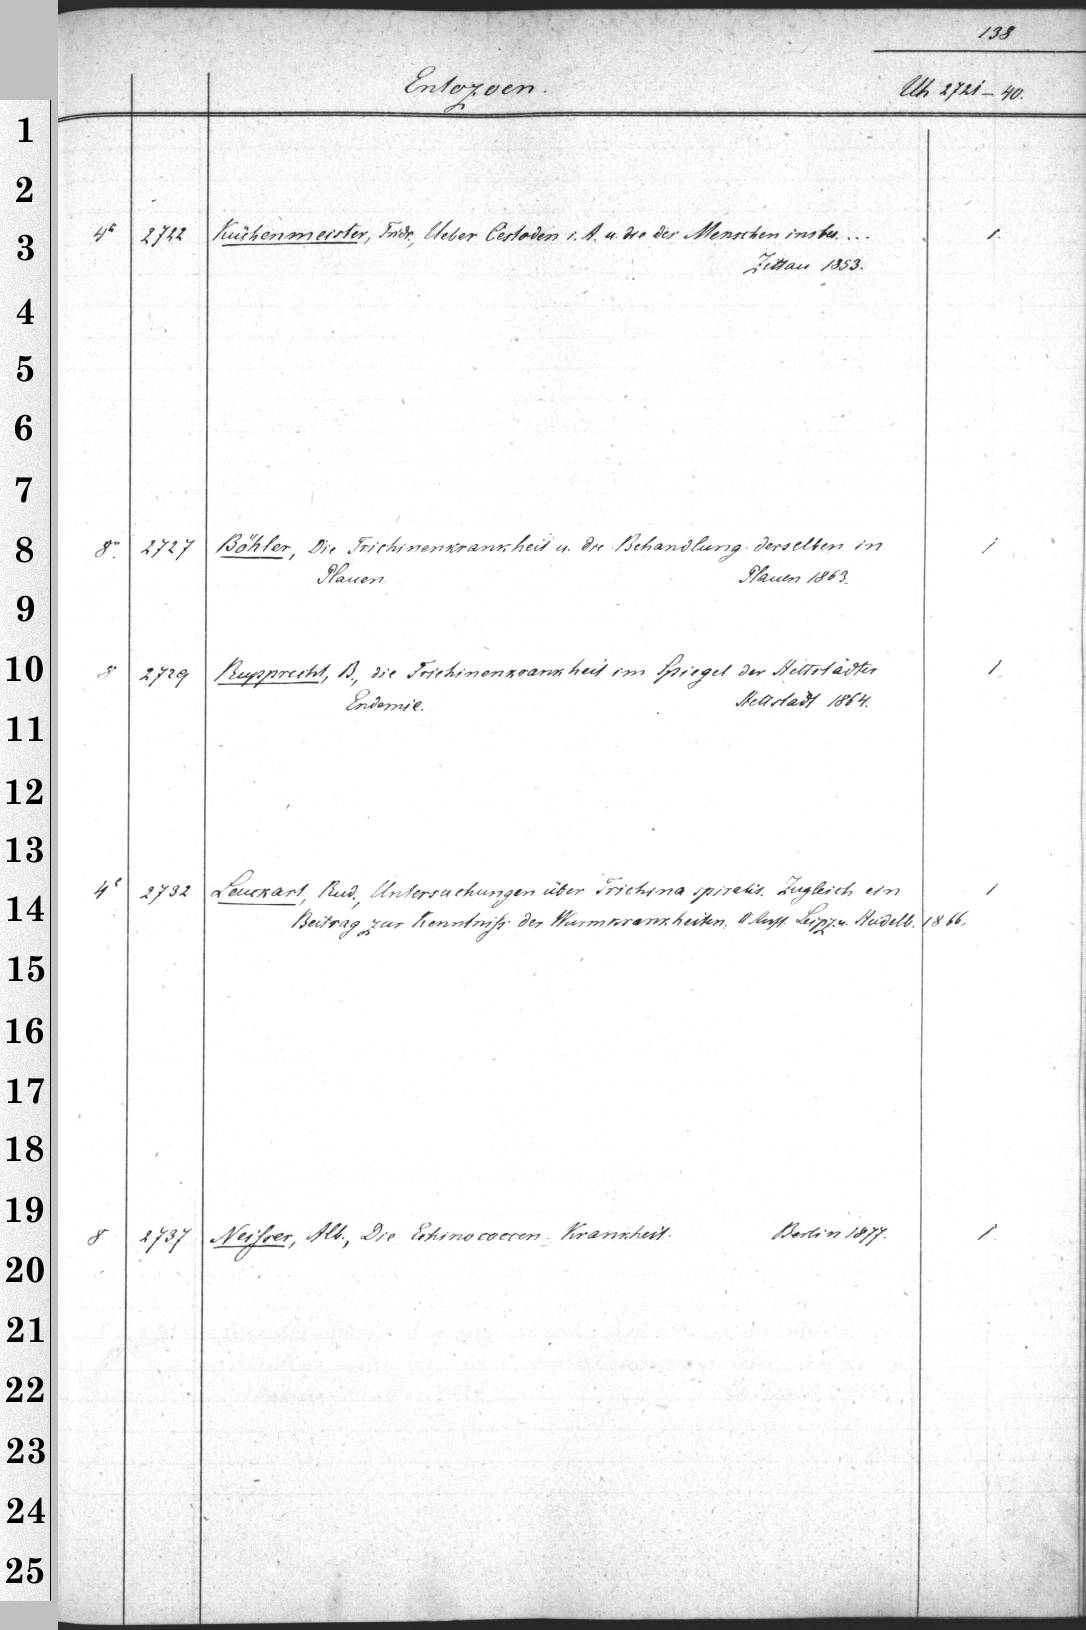 138
Entozoen. Uh 2721 – 40.
1
2
4° 2722 Küchenmeister, Fridr., Ueber Cestoden i. A. u. die des Menschen insbes... 1.
3
Zittau 1853.
4
5
6
7
8° 2727 Böhler, Die Trichinenkrankheit u. die Behandlung derselben in 1
8
Plauen Plauen 1863.
9
8 2729 Rupprecht, B., die Trichinenkrankheit im Spiegel der Hettstädter 1.
10
Endemie. Hettstädt 1864.
11
12
13
4° 2732 Leuckart, Rud., Untersuchungen über Trichina spiralis. Zugleich ein 1
14
Beitrag zur Kenntniß der Wurmkrankheiten. II Aufl. Leipz. u. Heidelb. 1866.
15
16
17
18
19
8 2737 Neisser, Alb., Die Echinococcen-Krankheit. Berlin 1877. 1
20
21
22
23
24
25